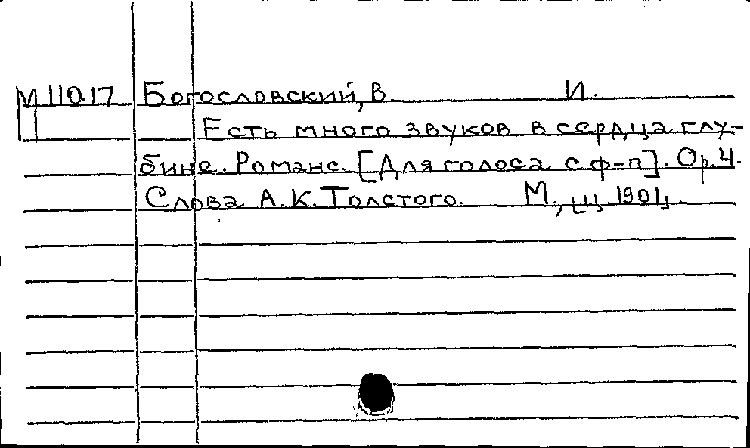 М 11017 Богословский, В. И.
Есть много звуков в сердца глу-
бине. Романс. [Для голоса с ф-п]. Ор. 4.
Слова А. К. Толстого. М., ц. 1901,